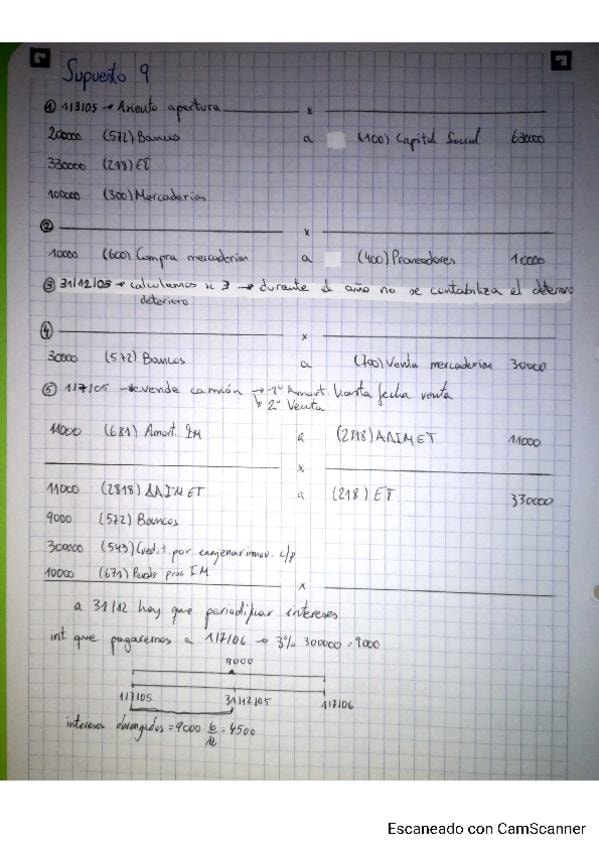 Supuesto 9
① 1/3/05 → Asiento apertura x
200000 (572) Bancos a (100) Capital Social 630000
330000 (218) ET
100000 (300) Mercaderías
② x
10000 (600) Compra mercaderías a (400) Proveedores 10000
③ 31/12/05 → calculamos si → durante el año no se contabiliza el deterioro
deterioro
④ x
30000 (572) Bancos a (700) Venta mercaderías 30000
⑤ 1/7/05 → vende camión → 1º Amort. hasta fecha venta
↳ 2º Venta
11000 (681) Amort. IM a (2818) AAIMET 11000
x
11000 (2818) AAIMET a (218) ET 330000
9000 (572) Bancos
300000 (543) Cred. t. por enajenac inmov. c/p
10000 (671) Perds proc IM
x
a 31/12 hay que periodificar intereses
int que pagaremos a 1/7/06 → 3% 300000 = 9000
9000
1/7/05 31/12/05 1/7/06
intereses devengados = 9000 6/12 = 4500
Escaneado con CamScanner